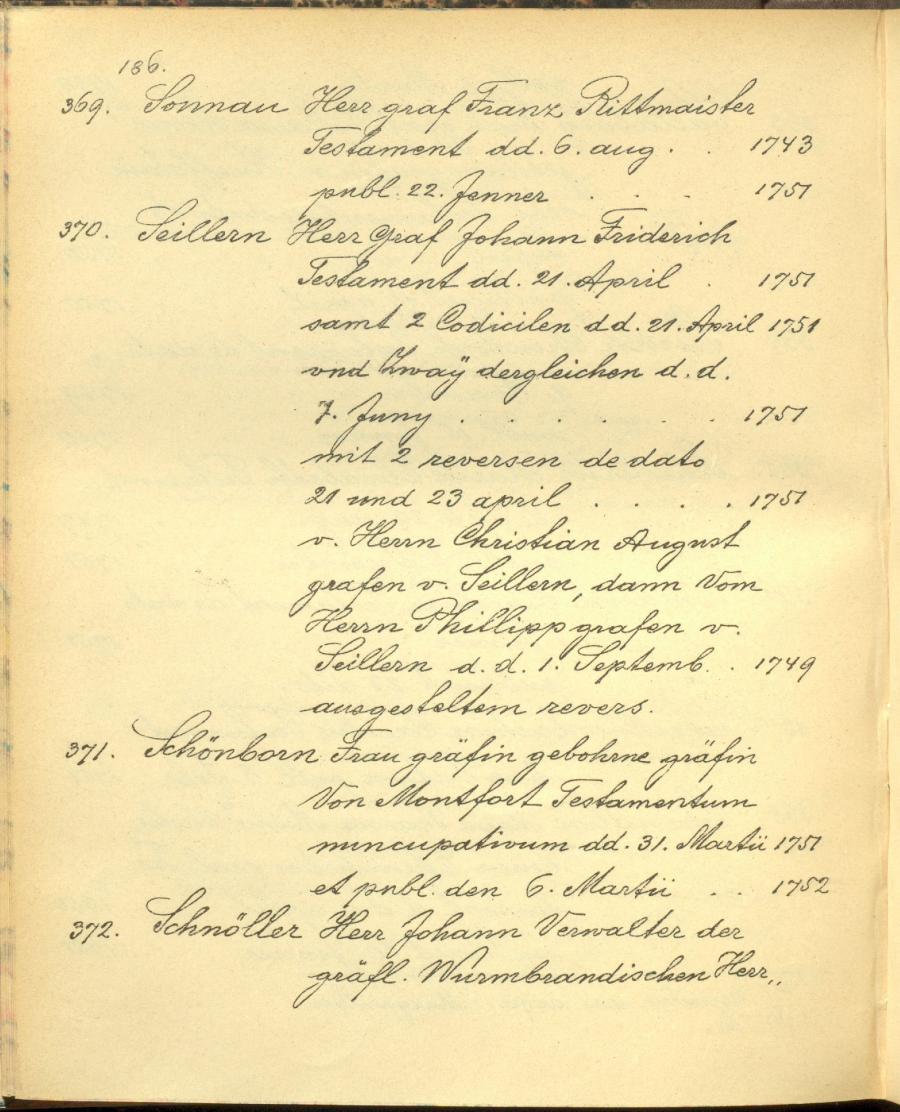 186.
369. Sonnau Herr graf Franz Rittmaister
Testament dd. 6. aug. . 1743
publ. 22. Jenner . . . 1751
370. Seillern Herr Graf Johann Friderich
Testament dd. 21. April . 1751
samt 2 Codicilen dd. 21. April 1751
vnd Zwaÿ dergleichen d. d.
7. Juny . . . . . . 1751
mit 2 reversen de dato
21 und 23 april . . . . 1751
v. Herrn Christian August
grafen v. Seillern, dann Vom
Herrn Phillipp grafen v.
Seillern d. d. 1. Septemb. . 1749
ausgesteltem revers.
371. Schönborn Frau gräfin gebohrne gräfin
Von Montfort Testamentum
nuncupativum dd. 31. Martii 1751
et publ. den 6. Martii . . 1752
372. Schnöller Herr Johann Verwalter der
gräfl. Wurmbrandischen Herr„